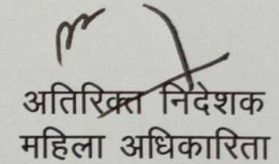 अतिरिक्त निदेशक
महिला अधिकारिता